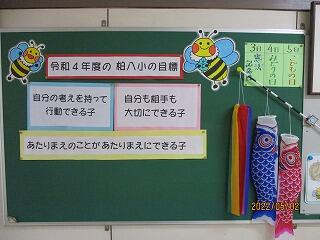 令和４年度の 柏八小の目標
自分の考えを持って
行動できる子
自分も相手も
大切にできる子
あたりまえのことがあたりまえにできる子
3日
憲法
4日
みどりの日
5日
こどもの日
2022/05/02